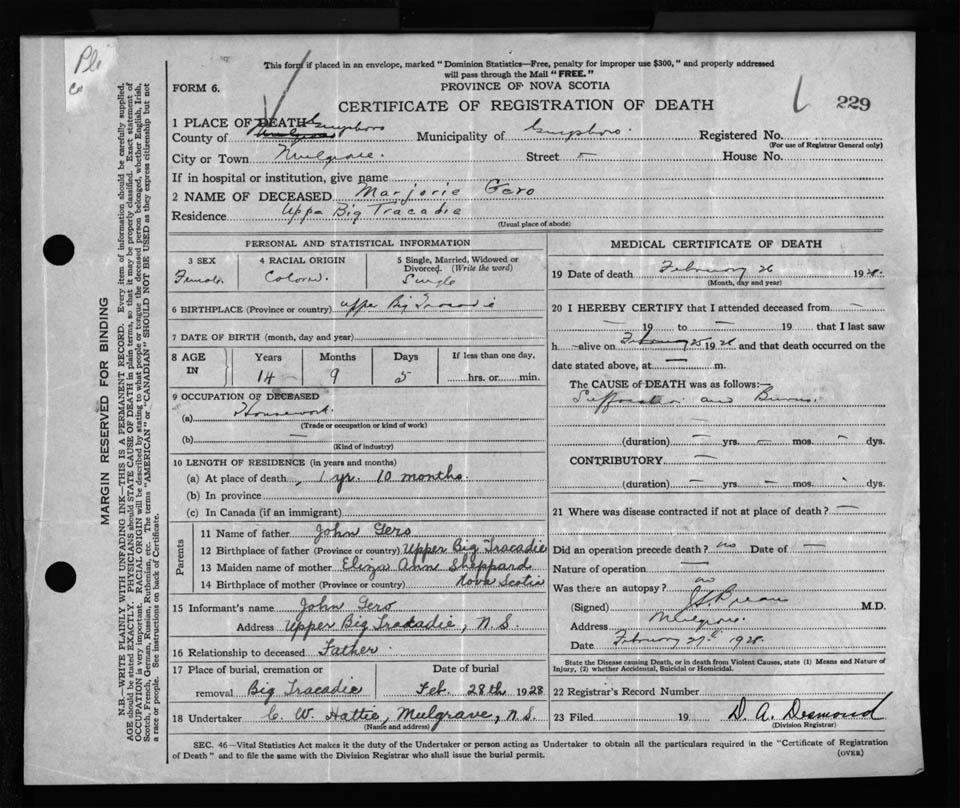 Ple
Co
This form if placed in an envelope, marked "Dominion Statistics—Free, penalty for improper use $300," and properly addressed
will pass through the Mail "FREE."
FORM 6. PROVINCE OF NOVA SCOTIA
CERTIFICATE OF REGISTRATION OF DEATH 229
1 PLACE OF DEATH Guysboro
County of Mulgrave Municipality of Guysboro. Registered No.
(For use of Registrar General only)
City or Town Mulgrave. Street — House No.
If in hospital or institution, give name
2 NAME OF DECEASED Marjorie Gero
Residence Uppa Big Tracadie
(Usual place of abode)
PERSONAL AND STATISTICAL INFORMATION
3 SEX 4 RACIAL ORIGIN 5 Single, Married, Widowed or
Divorced. (Write the word)
Female Colored Single
6 BIRTHPLACE (Province or country) Uppa Big Tracadie
7 DATE OF BIRTH (month, day and year)
8 AGE IN Years Months Days If less than one day,
14 9 5 hrs. or min.
9 OCCUPATION OF DECEASED
(a) Housework.
(Trade or occupation or kind of work)
(b) —
(Kind of industry)
10 LENGTH OF RESIDENCE (in years and months)
(a) At place of death, 1 yr. 10 months.
(b) In province
(c) In Canada (if an immigrant)
Parents
11 Name of father John Gero
12 Birthplace of father (Province or country) Upper Big Tracadie
13 Maiden name of mother Eliza Ann Sheppard
14 Birthplace of mother (Province or country) Nova Scotia
15 Informant's name John Gero
Address Upper Big Tracadie, N.S.
16 Relationship to deceased Father.
17 Place of burial, cremation or Date of burial
removal Big Tracadie Feb. 28th 1928
18 Undertaker C. W. Hattie, Mulgrave, N.S.
(Name and address)
MEDICAL CERTIFICATE OF DEATH
19 Date of death February 26 1928.
(Month, day and year)
20 I HEREBY CERTIFY that I attended deceased from —
— 19 to — 19 that I last saw
h — alive on February 25 1928 and that death occurred on the
date stated above, at — m.
The CAUSE of DEATH was as follows:—
Suffocation and Burns.
(duration) — yrs. — mos. — dys.
CONTRIBUTORY —
(duration) — yrs. — mos. — dys.
21 Where was disease contracted if not at place of death? —
Did an operation precede death? no Date of —
Nature of operation —
Was there an autopsy? no
(Signed) M.D.
Address Mulgrave.
Date February 27th 1928.
State the Disease causing Death, or in death from Violent Causes, state (1) Means and Nature of
Injury, (2) whether Accidental, Suicidal or Homicidal.
22 Registrar's Record Number
23 Filed 19 D. A. Desmond
(Division Registrar)
SEC. 46—Vital Statistics Act makes it the duty of the Undertaker or person acting as Undertaker to obtain all the particulars required in the "Certificate of Registration
of Death" and to file the same with the Division Registrar who shall issue the burial permit. (OVER)
MARGIN RESERVED FOR BINDING
N.B.—WRITE PLAINLY WITH UNFADING INK—THIS IS A PERMANENT RECORD. Every item of information should be carefully supplied.
AGE should be stated EXACTLY. PHYSICIANS should STATE CAUSE OF DEATH in plain terms, so that it may be properly classified. Exact statement of
OCCUPATION is very important. RACIAL ORIGIN will be described by stating to what people or tongue the deceased person belonged, whether English, Irish,
Scotch, French, German, Russian, Ruthenian, etc. The terms "AMERICAN" or "CANADIAN" SHOULD NOT BE USED as they express citizenship but not
a race or people. See instructions on back of Certificate.